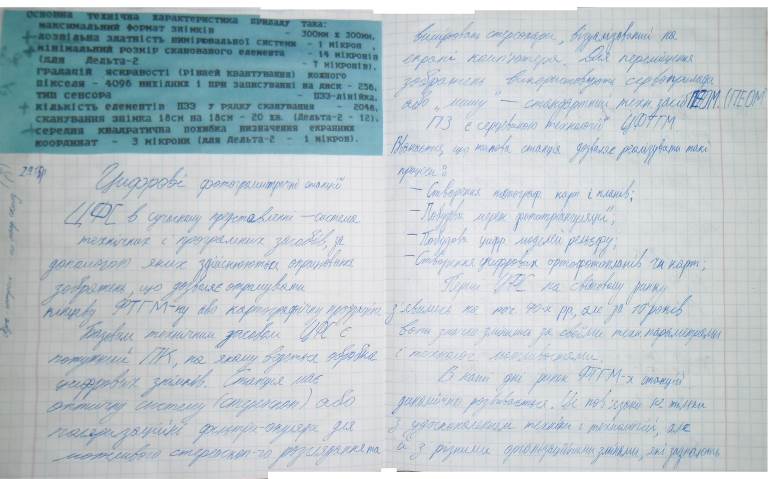 Основна технічна характеристика приладу така:
максимальний формат знімків - 300мм х 300мм,
дозвільна здатність вимірювальної системи - 1 мікрон,
мінімальний розмір сканованого елемента - 14 мікронів
(для Дельта-2 - 7 мікронів),
градацій яскравості (рівней квантування) кожного
пікселя - 4096 вихідних і при записуванні на диск - 256,
тип сенсора - ПЗЗ-лінійка,
кількість елементів ПЗЗ у рядку сканування - 2048,
сканування знімка 18см на 18см - 20 хв. (Дельта-2 - 12),
середня квадратична похибка визначення екранних
координат - 3 мікрони (для Дельта-2 - 1 мікрон).
Цифрові фотограмметричні станції
ЦФС в сучасному представленні – система
технічних і програмних засобів, за
допомогою яких здійснюються опрацювання
зображень, що дозволяє отримувати
ФТГМ-ну або картографічну продукцію
Базовим технічним засобом ЦФС є
потужний ПК, на якому ведеться обробка
цифрових знімків. Станція має
оптичну систему (стереоскоп) або
поляризаційні фільтри-окуляри для
можливого стереоскоп-го розглядання та
вимірювань стереопари, візуалізованій на
екрані комп'ютера. Для переміщення
зображень використовують сервоприводи
або „мишу" – стандартний техн. засіб ПЕОМ. (ПЕОМ
ПЗ є серцевиною технології ЦФТГМ
Вважається, що типова станція дозволяє реалізувати такі
процеси:
– Створення топограф. карт і планів;
– Побудова мереж фототріангуляції;
– Побудова цифр. моделей рельєфу;
– Створення цифрових ортофотопланів чи карт;
Перші ЦФС на світовому ринку
з'явились на поч. 90-х рр, але за 10 років
вони значно змінились за своїми техн. параметрами
і технолог. можливостями.
В наші дні ринок ФТГМ-х станцій
динамічно розвивається. Це пов'язано не тільки
з удосконаленням техніки і технологій, але
й з різними організаційними змінами, які зазнають